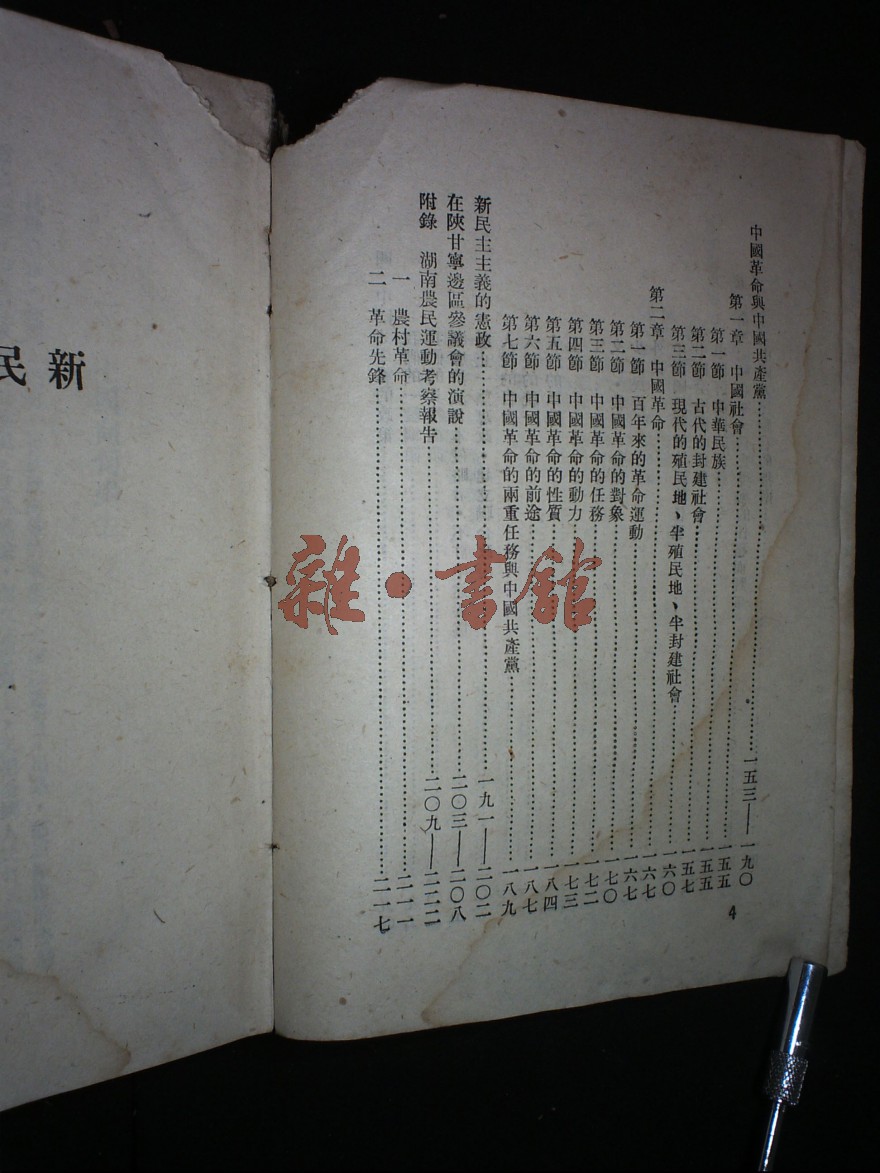 中國革命與中國共產黨……一五三——一九〇
第一章 中國社會……一五五
第一節 中華民族……一五五
第二節 古代的封建社會……一五七
第三節 現代的殖民地、半殖民地、半封建社會……一六〇
第二章 中國革命……一六七
第一節 百年來的革命運動……一六七
第二節 中國革命的對象……一七〇
第三節 中國革命的任務……一七二
第四節 中國革命的動力……一七三
第五節 中國革命的性質……一八四
第六節 中國革命的前途……一八七
第七節 中國革命的兩重任務與中國共產黨……一八九
新民主主義的憲政……一九一——二〇二
在陝甘寧邊區參議會的演說……二〇三——二〇八
附錄 湖南農民運動考察報告……二〇九——二二二
一 農村革命……二一一
二 革命先鋒……二一七
4
新民
雜·書館